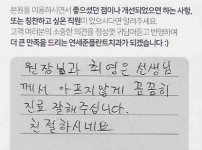 본원을 이용하시면서 좋으셨던 점이나 개선되었으면 하는 사항,
또는 칭찬하고 싶은 직원이 있으시다면 알려주세요.
고객 여러분의 소중한 의견을 정성껏 귀담아듣고 반영하여
더 큰 만족을 드리는 연세준플란트치과가 되겠습니다 :)
원장님과 최영은 선생님
께서 아프지않게 꼼꼼히
진료 잘해주십니다.
친절하시네요